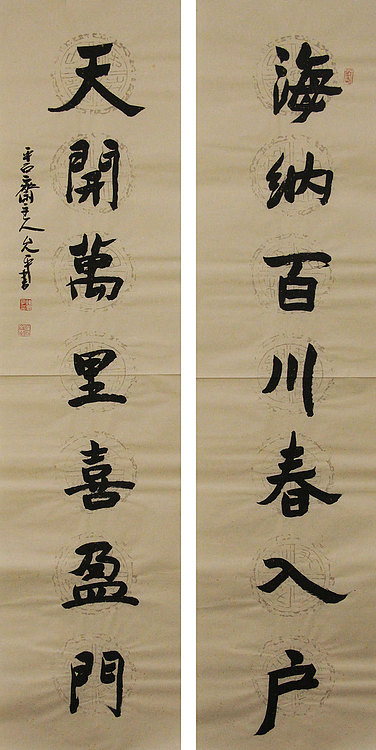 海納百川春入户
天開萬里喜盈門
齋主人允平書